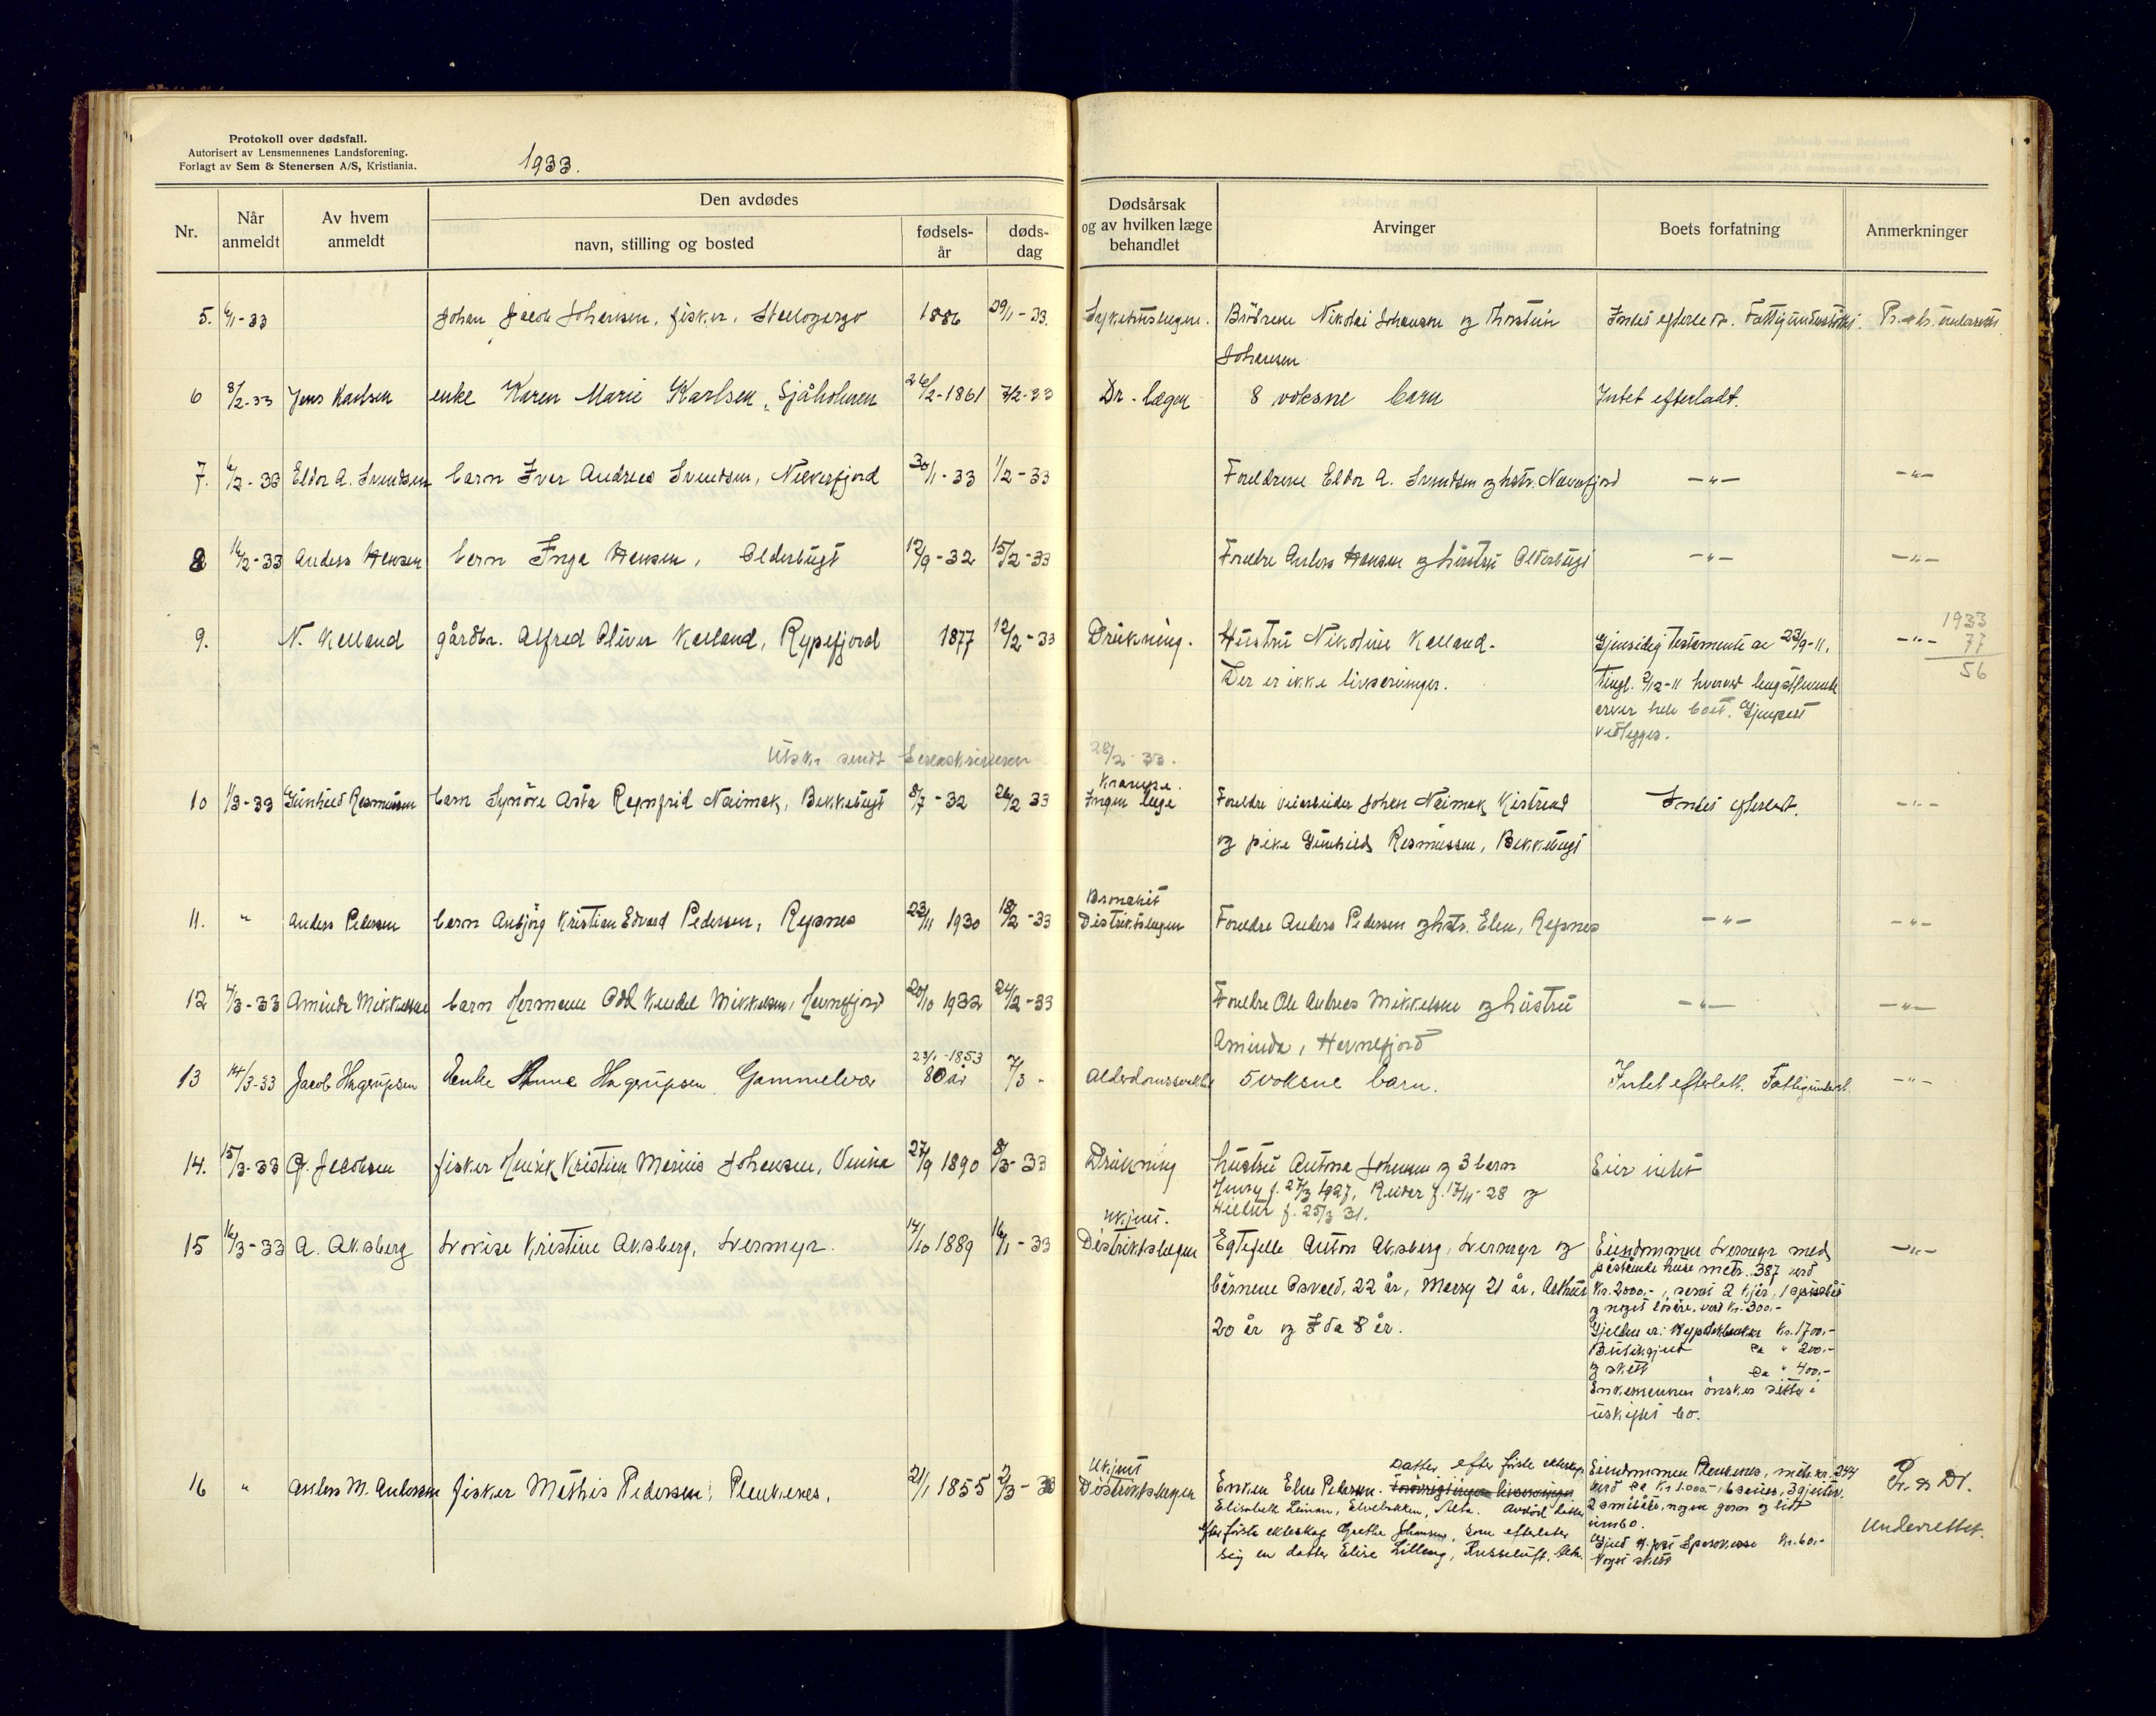 Protokoll over dødsfall.
Autorisert av Lensmennenes Landsforening.
Forlagt av Sem & Stenersen A/S, Kristiania.
1933.
Nr.
Når anmeldt
Av hvem anmeldt
Den avdødes
navn, stilling og bosted
fødsels-år
døds-dag
Dødsårsak og av hvilken læge behandlet
Arvinger
Boets forfatning
Anmerkninger
5. 6/1-33 Johan Jacob Johansen, fisker, 1886 29/1-33. Sykehuslægen. Brödrene Nikolai Johansen og Thorstein Intet efterladt. Fattigunderstöttet. Pr. & Dr. underrettet
Johansen
6 8/2-33 Jens Karlsen enke Karen Marie Karlsen, Sjåholmen 26/2-1861 7/2-33 Dr. lægen 8 voksne barn Intet efterladt.
7. 6/2-33 Eldor A. Svendsen barn Iver Andreas Svendsen, Neverfjord 30/1-33 1/2-33 Foreldrene Eldor A. Svendsen og hstr. Neverfjord -"- -"-
8 16/2-33 Anders Hansen barn Inga Hansen, Olderbugt 12/9-32 15/2-33 Foreldre Anders Hansen og hustru Olderbugt -"- -"-
9. N. Kelland gårdbr. Alfred Oliver Kelland, Rypefjord 1877 12/2-33 Drukning. Hustru Nikoline Kelland. Gjensidig testamente av 23/9-11, -"-
1933
77
56
Der er ikke livsarvinger. Tingl. 2/12-11 hvorved lengstlevende
arver hele boet. Gjenpart
vedlegges.
Utskr. sendt Sorenskriveren 28/2-33.
10 1/3-33 Gunhild Rasmussen barn Synöve Asta Ragnfrid Naimak, Bekkebugt 8/7-32 26/2 33 Krampe. Ingen læge Foreldre veiarbeider Johan Naimak Kistrand Intet efterladt. -"-
og pike Gunhild Rasmussen, Bekkebugt
11. " Anders Pedersen barn Asbjörg Kristian Edvard Pedersen, Repnes 23/11 1930 18/2-33 Bronchit Distriktslægen Foreldre Anders Pedersen og hstr. Elen, Repnes -"- -"-
12 4/3-33 Aminda Mikkelsen barn Hermann Odd Kendel Mikkelsen, Hevnefjord 20/10 1932 24/2-33 Foreldre Ole Andreas Mikkelsen og hustru -"- -"-
Aminda, Hevnefjord
13 14/3-33 Jacob Hagrupsen Enke Anne Hagrupsen Gammelvær 23/1-1853 80 år 7/3- Alderdomssvakhet 5 voksne barn. Intet efterlatt. Fattigunderst. -"-
14. 15/3-33 Jacobsen fisker Henrik Kristian Marius Johansen, 27/9 1890 8/3-33 Drukning hustru Antona Johansen og 3 barn Eier intet
Henry f. 27/3 1927, Reidar f. 17/11-28 og
f. 25/3 31.
15 16/3-33 A. Aksberg Lovise Kristine Aksberg, Lermyr. 14/10 1889 16/1-33 Ukjent. Distriktslægen Egtefelle Anton Aksberg, Lermyr og Eiendommen Lermyr med -"-
påstående huse matr. 387 verd
börnene Osvald, 22 år, Marry 21 år, Arthur kr. 2000,-, samt 2 kjör, 1
og noget lösöre, verd kr. 300,-
20 år og Ida 8 år. Gjelden er: Hypotekbanken kr. 1700,-
Butikgjeld ca " 200.-
og skatt ca " 400,-
Enkemannen önsker sitte i
uskiftet bo.
16 " Anders M. Andersen fisker Mathis Pedersen, Plenkenes, 21/1 1855 2/3-33 Ukjent Distriktslægen Enken Elen Pedersen. Forövrig ingen livsarvinger Datter efter förste ekteskap
Elisabeth Leinan, Elvebakken, Alta. Avdöd datter
efter förste ekteskap Grethe Johansen, som efterlater
sig en datter Elise Lilleng, Russeluft, Alta.
Eiendommen Plenkenes, matr. nr. 244
verd ca kr 1.000,-, 6 sauer, 3 gjeiter,
2 småbåter, nogen garn og litt
innbo.
Gjeld på Sparekasse kr. 60.-
Noget skatt
Pr. & Dr.
underrettet.